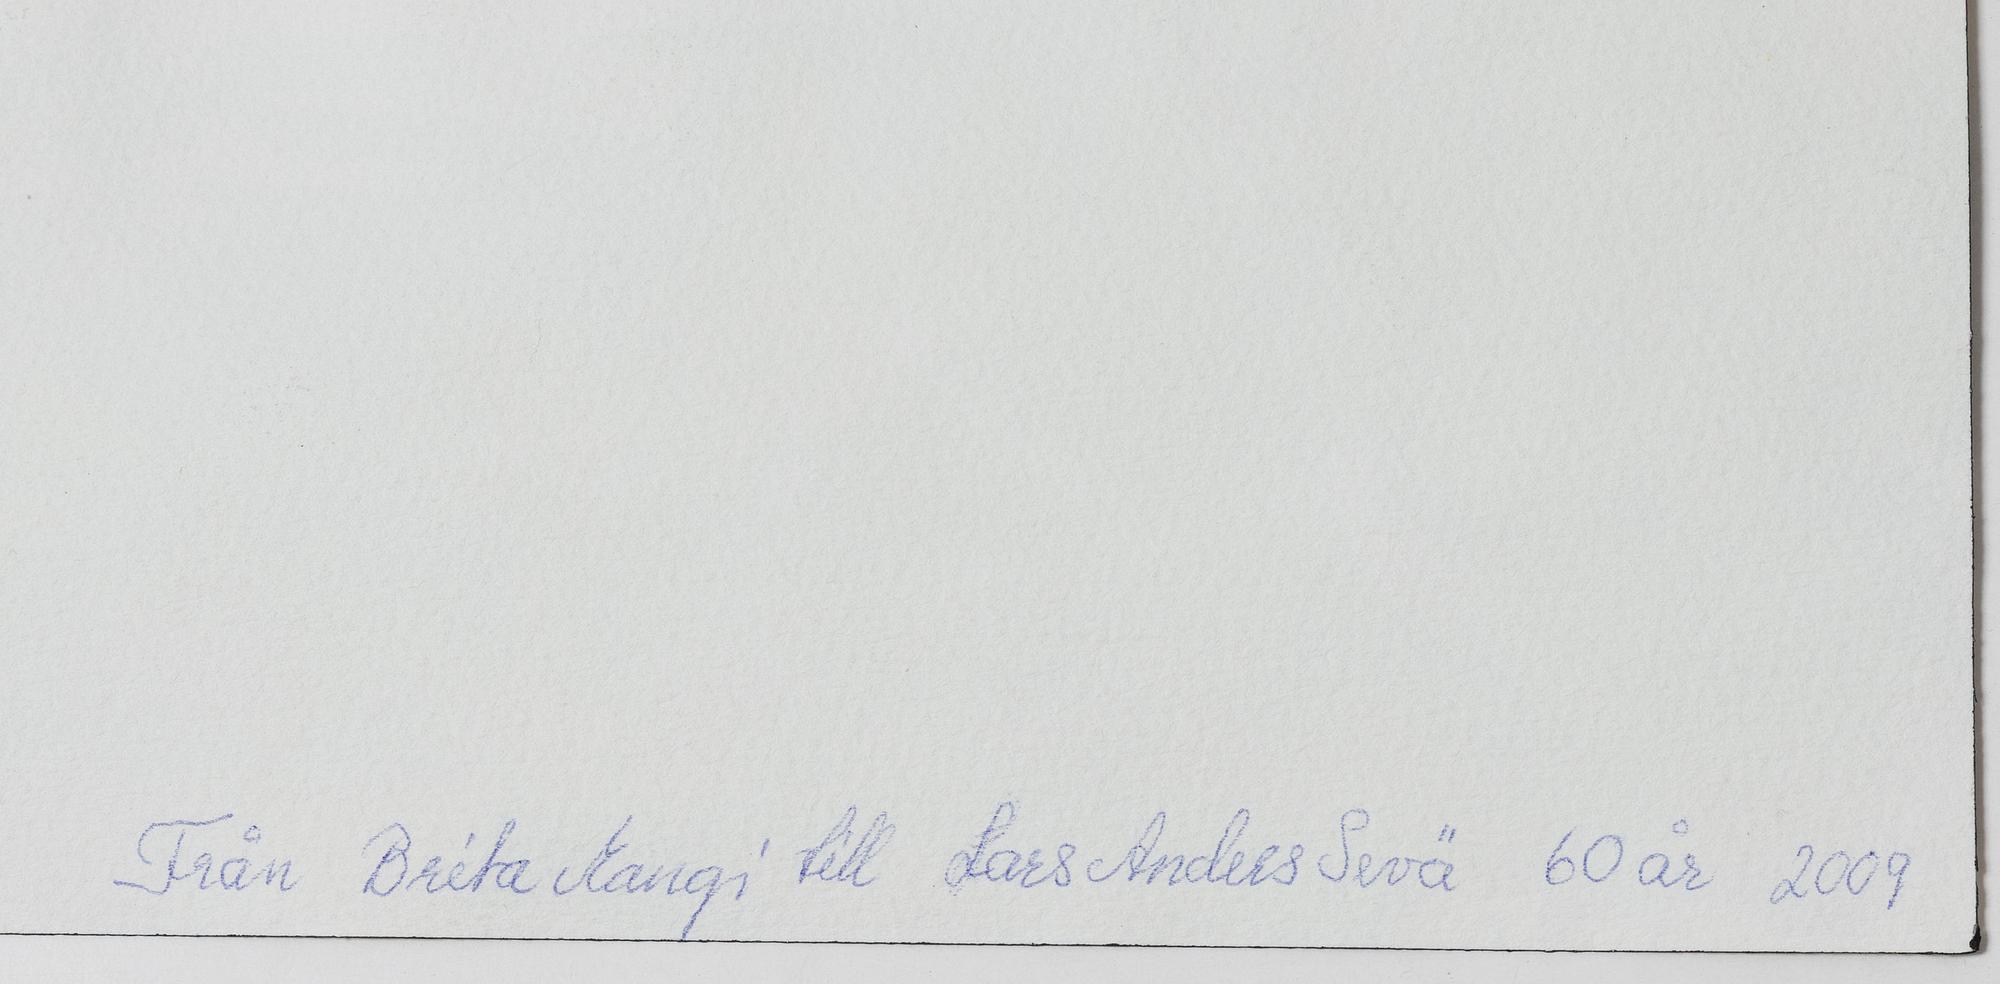 Från Brita Kangi till Lars Anders Sevä 60 år 2009